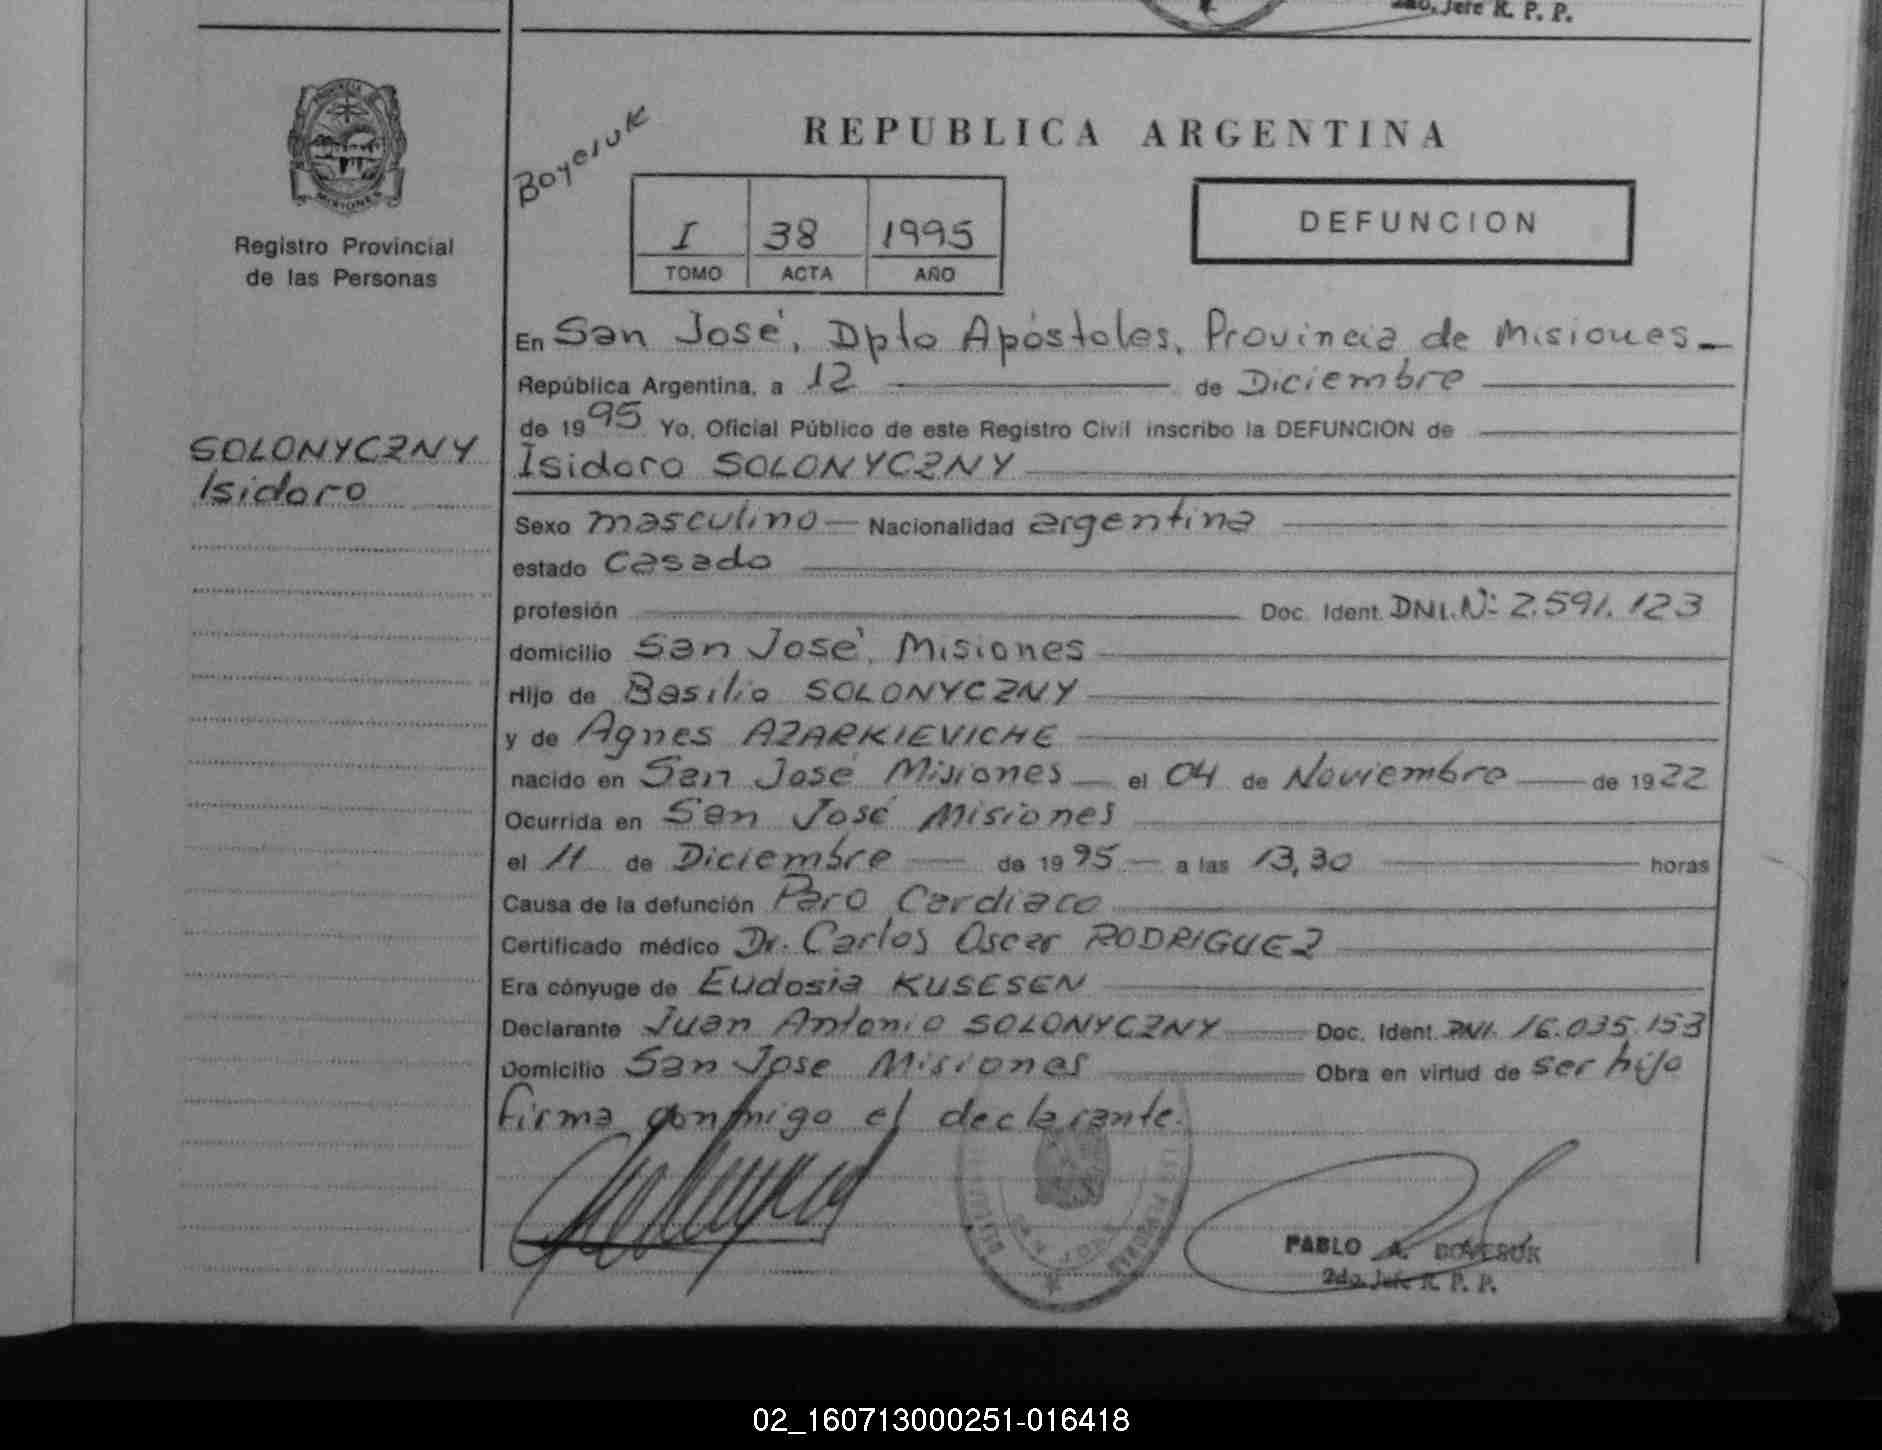 2do. Jefe R. P. P.
PROVINCIA
MISIONES
Registro Provincial
de las Personas
SOLONYCZNY
Isidoro
Boyeruk
REPUBLICA ARGENTINA
I 38 1995
TOMO ACTA AÑO
DEFUNCION
En San José, Dpto Apóstoles, Provincia de Misiones
República Argentina, a 12 de Diciembre
de 1995 Yo, Oficial Público de este Registro Civil inscribo la DEFUNCION de
Isidoro SOLONYCZNY
Sexo masculino Nacionalidad argentina
estado casado
profesión Doc. Ident. DNI. Nº 2.591.123
domicilio San José, Misiones
Hijo de Basilio SOLONYCZNY
y de Agnes AZARKIEVICHE
nacido en San José Misiones el 04 de Noviembre de 1922
Ocurrida en San José Misiones
el 11 de Diciembre de 1995 a las 13,30 horas
Causa de la defunción Paro Cardiaco
Certificado médico Dr. Carlos Oscar RODRIGUEZ
Era cónyuge de Eudosia KUSESEN
Declarante Juan Antonio SOLONYCZNY Doc. Ident. DNI. 16.035.153
Domicilio San Jose Misiones Obra en virtud de ser hijo
Firma conmigo el declarante.
SAN JOSE
PABLO A. BOYERUK
2do. Jefe R. P. P.
02_160713000251-016418